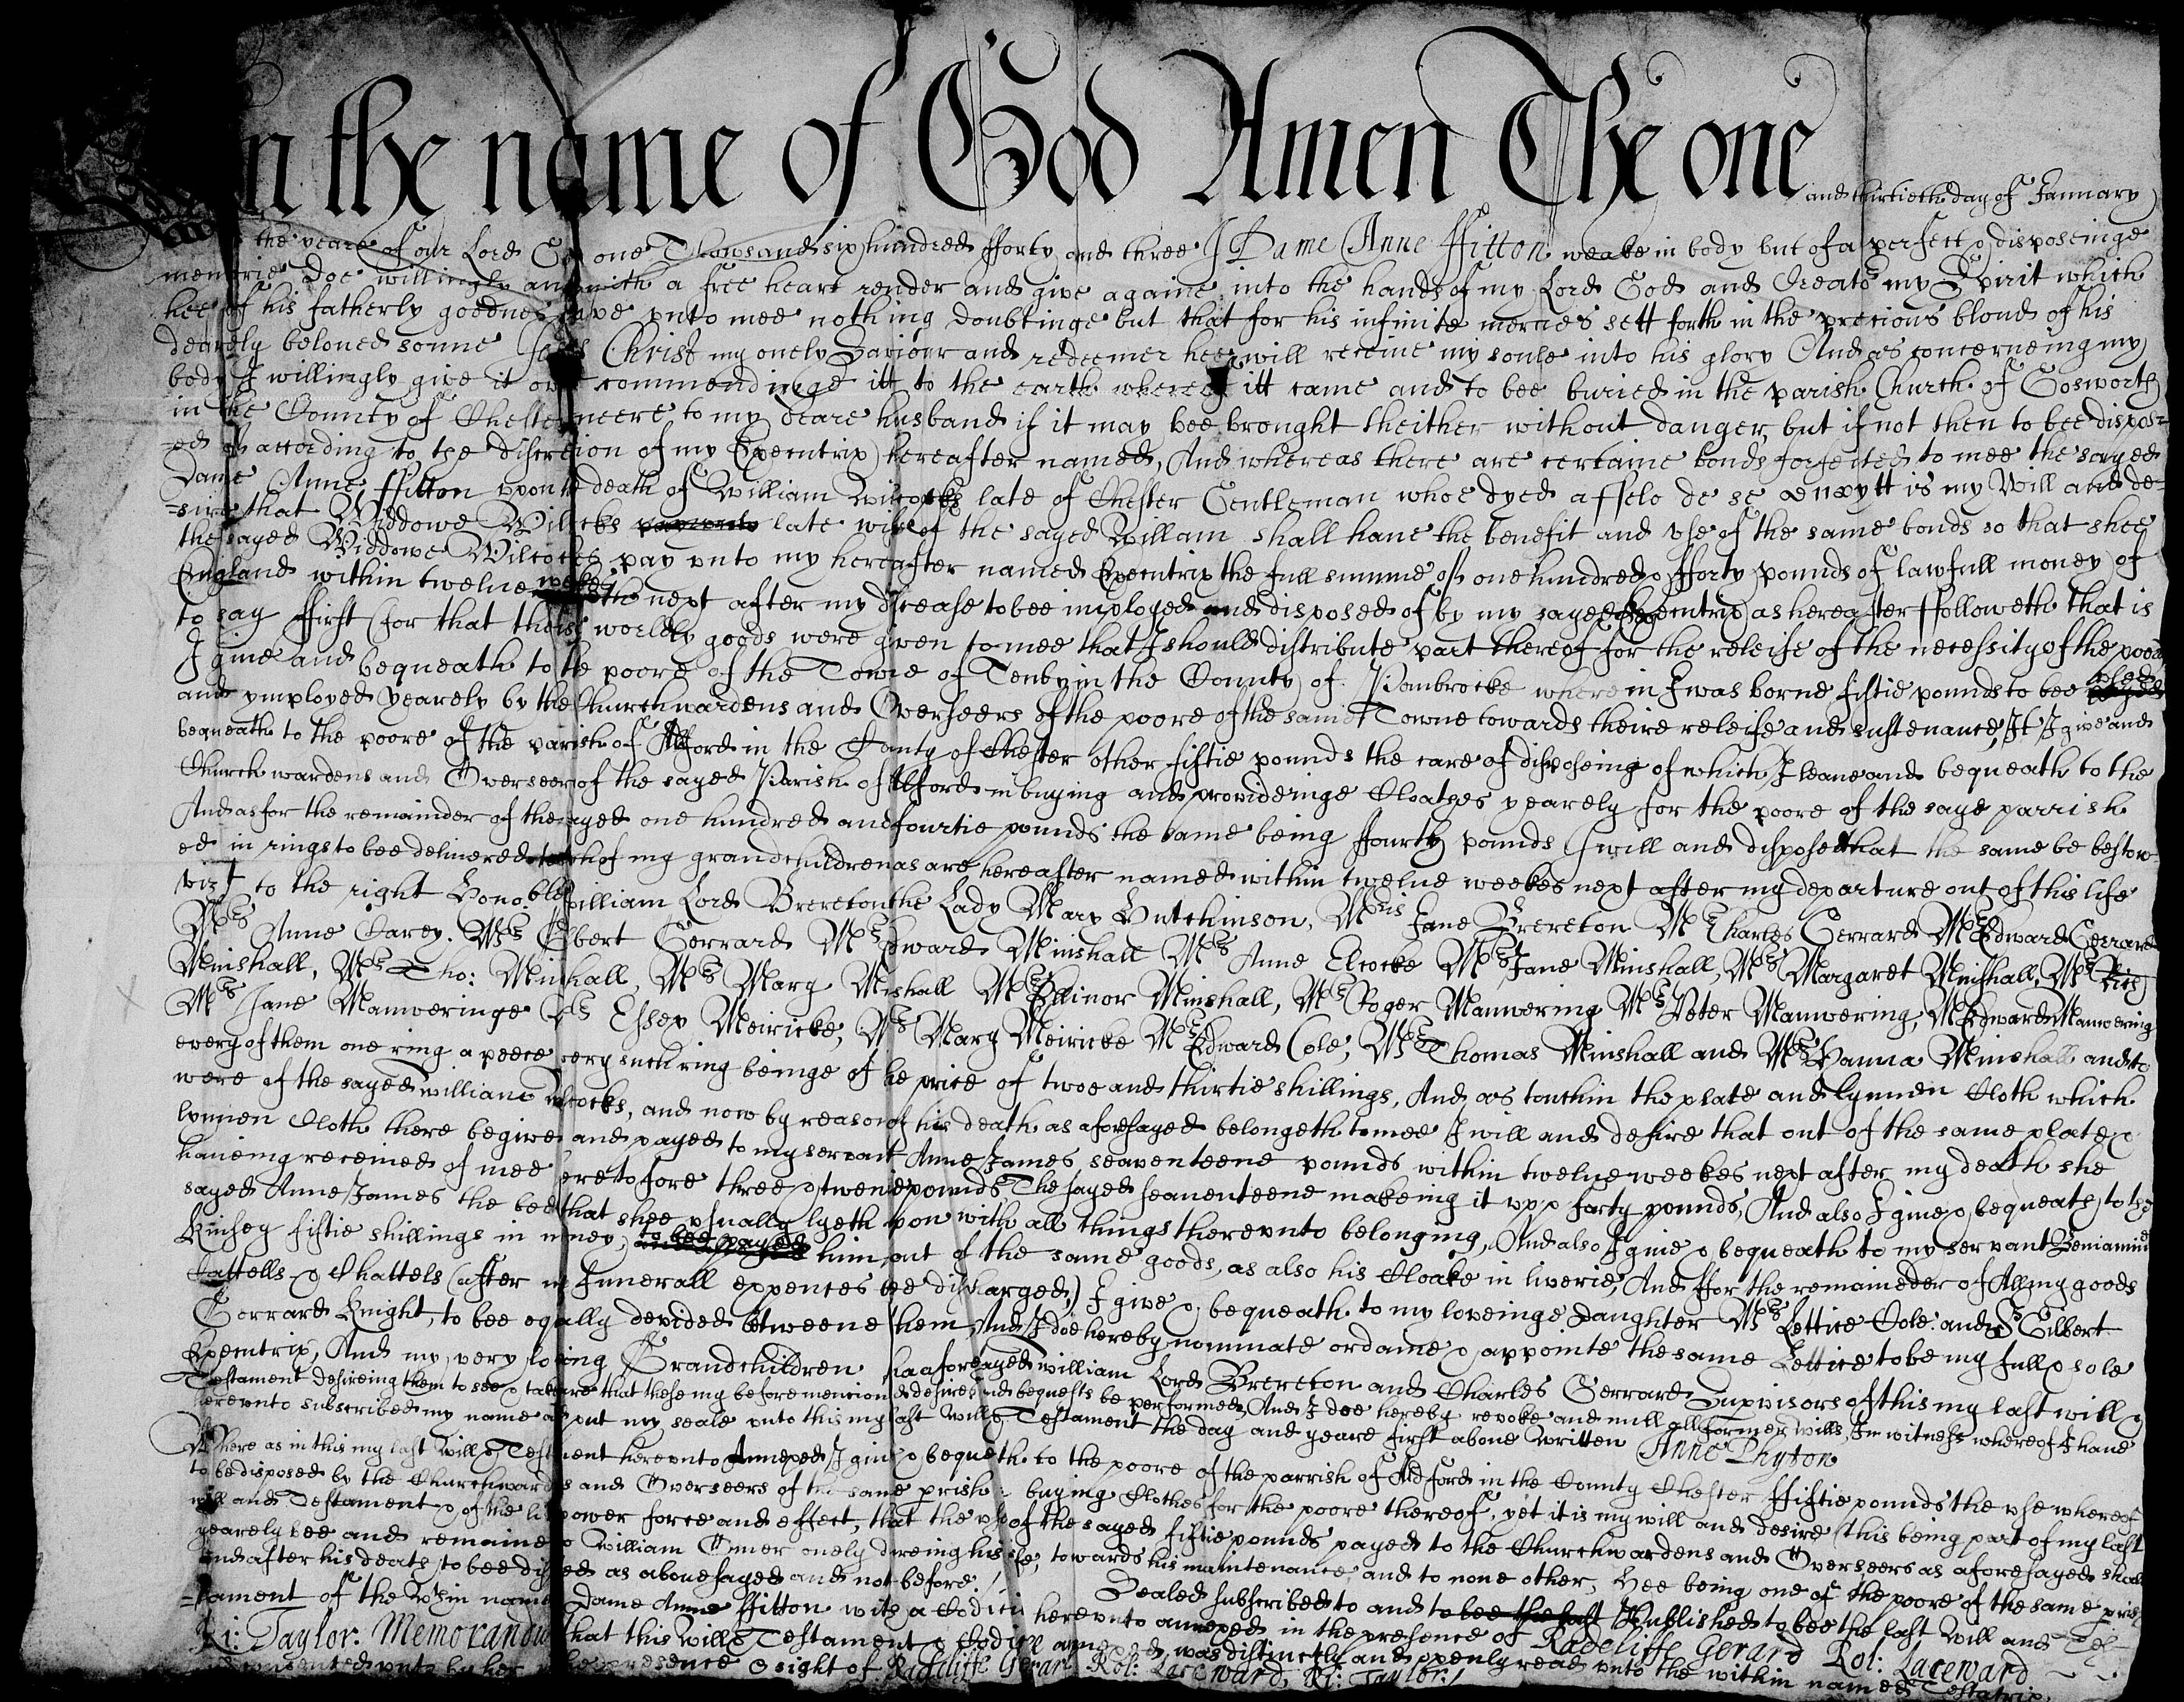 In the name of God Amen The one and thirtieth day of January
the yeare of our Lord God one Thowsand six hundred fforty and three I Dame Anne ffitton weake in body but of a perfect & disposeinge
memorie Doe willingly and with a free heart render and give againe into the hands of my Lord God and Creator my Spirit which
hee of his fatherly goodnes gave unto mee nothing doubtinge but that for his infinite mercies sett forth in the precious bloud of his
dearely beloued sonne Jesus Christ my onely Saviour and redeemer hee will receiue my soule into his glory And as concerneing my
body I willingly give it over commendinge itt to the earth whereof itt came and to bee buried in the parish Church of Gosworth
in the County of Chester neere to my deare husband if it may bee brought theither without danger, but if not then to bee dispos-
-ed of according to the discretion of my Executrix hereafter named, And whereas there are certaine bonds forfeited to mee the sayed
Dame Anne ffitton vpon the death of William Wilcocks late of Chester Gentleman whoe dyed a ffelo de se ytt is my Will and de-
-sire that Widdowe Wilcocks late wife of the sayed Willam shall haue the benefit and vse of the same bonds so that shee
the sayed Widdowe Wilcockes pay vnto my hereafter named Executrix the full summe of one hundred & fforty pounds of lawfull money of
England within twelue weekes next after my decease to bee imployed and disposed of by my sayed Executrix as hereafter ffolloweth that is
to say ffirst (for that theise worldly goods were given to mee that I should distribute part thereof for the releife of the necessity of the poore
I giue and bequeath to the poore of the Towne of Tenby in the County of Pembrocke wherein I was borne fiftie pounds to bee vsed
and ymployed yearely by the Churchwardens and Overseers of the poore of the same Towne towards theire releife and sustenance, It I give and
bequeath to the poore of the parish of Alford in the County of Chester other fiftie pounds the care of disposeing of which I leaue and bequeath to the
Churchwardens and Overseers of the sayed Parish of Alford in buying and provideinge Cloathes yearely for the poore of the saye parrish
And as for the remainder of the sayed one hundred and fourtie pounds the same being ffourty pounds I will and dispose that the same be bestow-
ed in rings to bee deliuered to such of my grandchildren as are hereafter named within twelue weekes next after my departure out of this life
vizt to the right Honoble William Lord Brereton the Lady Mary Hutchinson, Mris Jane Brereton Mr Charles Gerrard Mr Edward Gerrard
Mrs Anne Carey. Mr Gilbert Gerrard Mr Edward Minshall Mrs Anne Elcocke Mrs Jane Minshall, Mrs Margaret Minshall, Mr Rich
Minshall, Mr Tho: Minshall, Mrs Mary Minshall Mrs Ellinor Minshall, Mr Roger Manwering Mr Peter Manwering, Mr Edward Manwering
Mrs Jane Manweringe Mrs Essex Meiricke, Mrs Mary Meiricke Mr Edward Cole, Mr Thomas Minshall and Mrs Hanna Minshall and to
every of them one ring a peece every such ring beinge of the price of twoe and thirtie shillings, And as touchin the plate and lynnen Cloth which
were of the sayed william Wilcocks, and now by reason of his death as aforesayed belongeth to mee I will and desire that out of the same plate &
lynnen Cloth there be given and payed to my servant Anne James seaventeene pounds within twelue weekes next after my death she
haueing receiued of mee heretofore three & twentie pounds, The sayed seauenteene makeing it vpp forty pounds, And also I giue & bequeath to the
sayed Anne James the bed that shee vsually lyeth vpon with all things therevnto belonging, And also I giue & bequeath to my servant Beniamine
Kinsey fiftie shillings in money, to bee payed him out of the same goods, as also his Cloake in liverie, And ffor the remaineder of All my goods
Cattells & Chattels (after my funerall expences bee discharged) I give & bequeath to my loveinge Daughter Mrs Lettice Cole and Sr Gilbert
Gerrard Knight, to bee equally devided betweene them, And I doe hereby nominate ordaine & appointe the same Lettice to be my full & sole
Executrix, And my very loving Grandchildren the aforesayed william Lord Brereton and Charles Gerrard Supvisors of this my last will &
Testament desireing them to see & take care that these my before mencioned desires and bequests be performed, And I doe hereby revoke and null all former wills, In witness whereof I haue
herevnto subscribed my name and put my seale vnto this my last will & Testament the day and yeare first aboue written Anne Phyton
Where as in this my last Will & Testament herevnto Annexed I giue & bequeth to the poore of the parrish of Aldford in the County Chester ffiftie pounds the vse whereof
to be disposed by the Churchwardens and Overseers of the same prish in buying Clothes for the poore thereof, yet it is my will and desire (this being part of my last
will and Testament & of the like power force and effect, that the vse of the sayed fiftie pounds payed to the Churchwardens and Overseers as aforesayed shall
yearely bee and remaine to William Comer onely dureing his life, towards his maintenance and to none other, Hee being one of the poore of the same prish
and after his death to bee disposed as abouesayed and not before./ Sealed subscribed to and to bee the last Published to bee the last Will and Tes-
-tament of the within named Dame Anne ffitton with a Codicil herevnto annexed in the presence of Radcliffe Gerard Rol: Laceward
Ri: Taylor. Memorandum that this Will & Testament & Codicill annexed was distinctly and openly read vnto the within named Testatrix
and consented vnto by her in the presence & sight of Radcliffe Gerard Rol: Laceward, Ri: Taylor./